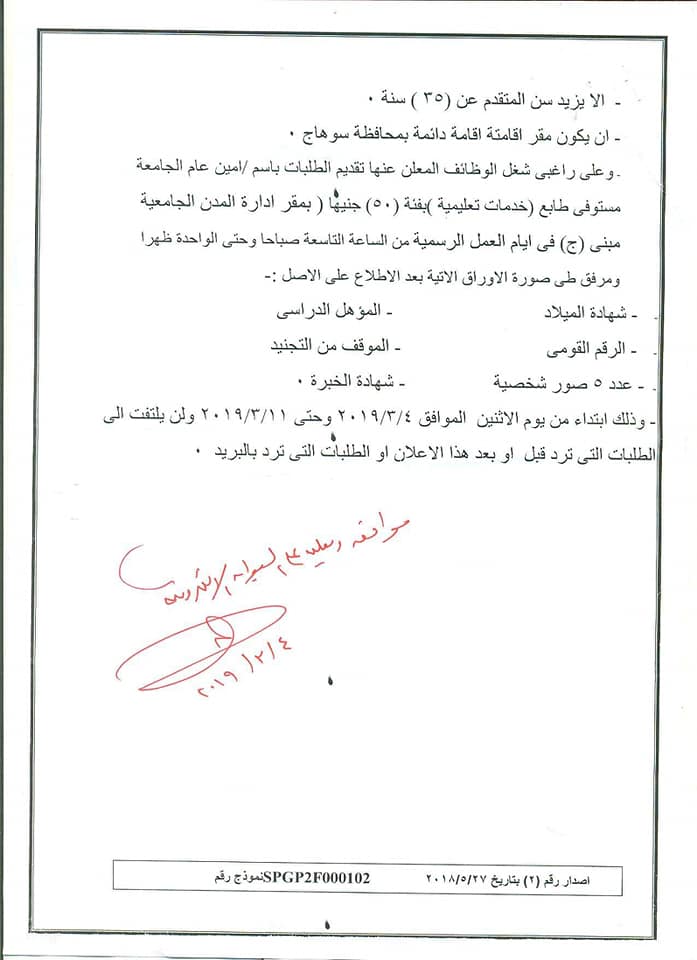 - الا يزيد سن المتقدم عن (٣٥ ) سنة ٠
- ان يكون مقر اقامتة اقامة دائمة بمحافظة سوهاج ٠
. وعلى راغبى شغل الوظائف المعلن عنها تقديم الطلبات باسم /امين عام الجامعة
مستوفى طابع (خدمات تعليمية )بفئة (٥٠) جنيها ( بمقر ادارة المدن الجامعية
مبنى (ج) فى ايام العمل الرسمية من الساعة التاسعة صباحا وحتى الواحدة ظهرا
ومرفق طى صورة الاوراق الاتية بعد الاطلاع على الاصل :-
- شهادة الميلاد - المؤهل الدراسى
- الرقم القومى - الموقف من التجنيد
- عدد ٥ صور شخصية - شهادة الخبرة ٠
- وذلك ابتداء من يوم الاثنين الموافق ٢٠١٩/٣/٤ وحتى ٢٠١٩/٣/١١ ولن يلتفت الى
الطلبات التى ترد قبل او بعد هذا الاعلان او الطلبات التى ترد بالبريد ٠
موافقه
٢٠١٩/٣/٤
اصدار رقم (٢) بتاريخ ٢٠١٨/٥/٢٧ نموذج رقم SPGP2F000102